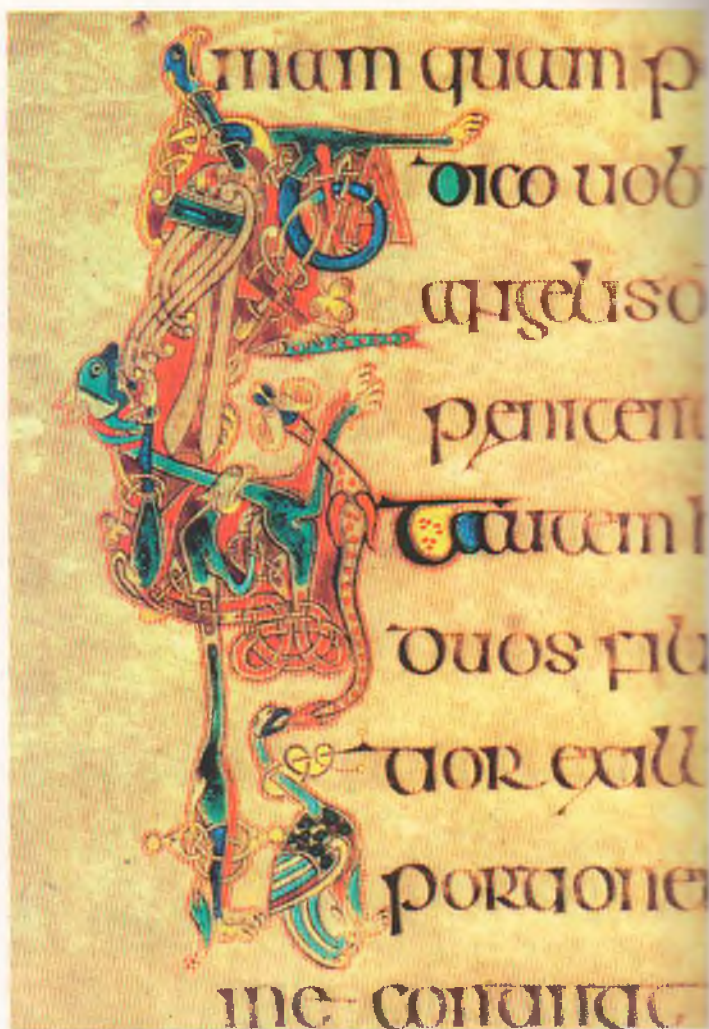 mam quam p
dico uob
angelis d
penitent
ait autem h
duos fili
tior ex ill
portione
me conting